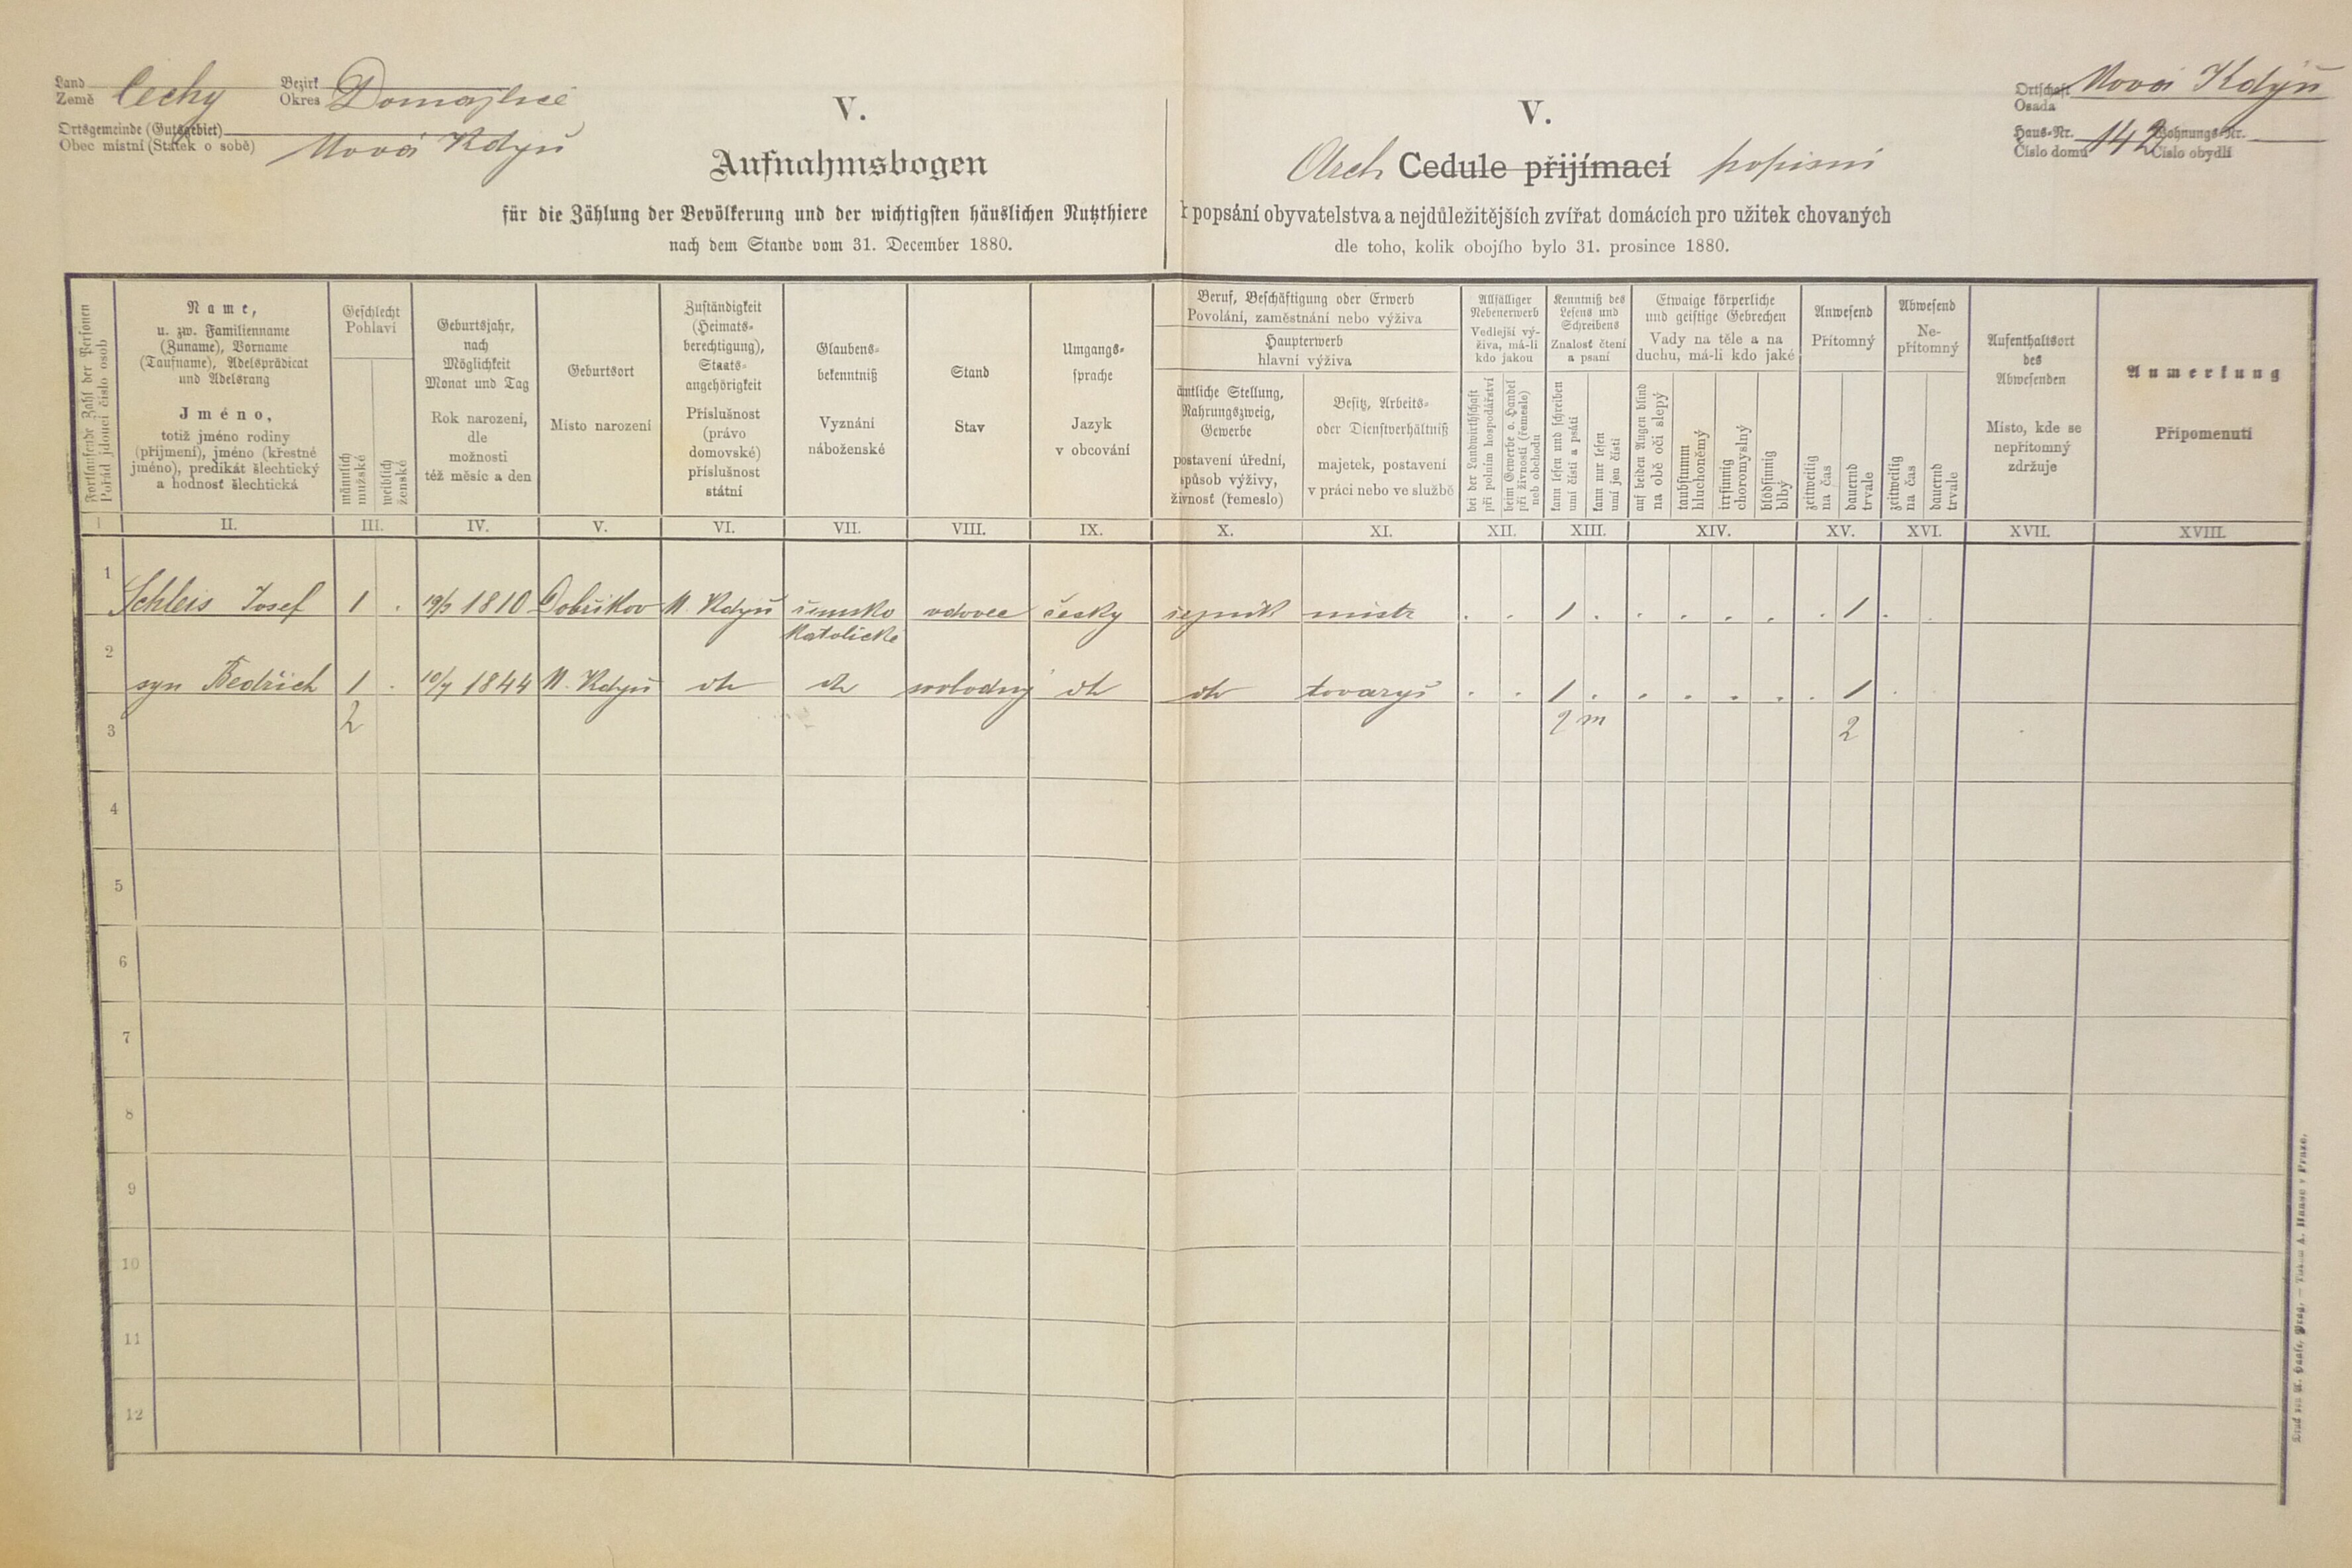 Land
Země Čechy
Bezirk
Okres Domažlice
Ortsgemeinde (Gutsgebiet)
Obec místní (Statek o sobě) Nová Kdyň
V.
Aufnahmsbogen
für die Zählung der Bevölkerung und der wichtigsten häuslichen Nutzthiere
nach dem Stande vom 31. December 1880.
V.
Arch Cedule přijímací popisní
k popsání obyvatelstva a nejdůležitějších zvířat domácích pro užitek chovaných
dle toho, kolik obojího bylo 31. prosince 1880.
Ortschaft
Osada Nová Kdyň
Haus-Nr.
Číslo domu 142
Wohnungs-Nr.
Číslo obydlí
Fortlaufende Zahl der Personen
Pořád jdoucí číslo osob
Name,
u. zw. Familienname
(Zuname), Vorname
(Taufname), Adelsprädicat
und Adelsrang
Jméno,
totiž jméno rodiny
(příjmení), jméno (křestné
jméno), predikát šlechtický
a hodnosť šlechtická
Geschlecht
Pohlaví
männlich
mužské
weiblich
ženské
Geburtsjahr,
nach
Möglichkeit
Monat und Tag
Rok narození,
dle
možnosti
též měsíc a den
Geburtsort
Místo narození
Zuständigkeit
(Heimats-
berechtigung),
Staats-
angehörigkeit
Příslušnost
(právo
domovské)
příslušnost
státní
Glaubens-
bekenntniß
Vyznání
náboženské
Stand
Stav
Umgangs-
sprache
Jazyk
v obcování
Beruf, Beschäftigung oder Erwerb
Povolání, zaměstnání nebo výživa
Haupterwerb
hlavní výživa
ämtliche Stellung,
Nahrungszweig,
Gewerbe
postavení úřední,
způsob výživy,
živnosť (řemeslo)
Besitz, Arbeits-
oder Dienstverhältniß
majetek, postavení
v práci nebo ve službě
Allfälliger
Nebenerwerb
Vedlejší vý-
živa, má-li
kdo jakou
bei der Landwirthschaft
při polním hospodářství
beim Gewerbe o. Handel
při živnosti (řemesle)
neb obchodu
Kenntniß des
Lesens und
Schreibens
Znalost čtení
a psaní
kann lesen und schreiben
umí čísti a psáti
kann nur lesen
umí jen čísti
Etwaige körperliche
und geistige Gebrechen
Vady na těle a na
duchu, má-li kdo jaké
auf beiden Augen blind
na obě oči slepý
taubstumm
hluchoněmý
irrsinnig
choromyslný
blödsinnig
blbý
Anwesend
Přítomný
zeitweilig
na čas
dauernd
trvale
Abwesend
Ne-
přítomný
zeitweilig
na čas
dauernd
trvale
Aufenthaltsort
des
Abwesenden
Místo, kde se
nepřítomný
zdržuje
Anmerkung
Připomenutí
I II. III. IV. V. VI. VII. VIII. IX. X. XI. XII. XIII. XIV. XV. XVI. XVII. XVIII.
1
Schleis Josef 1 . 19/3 1810 Dobřikov N. Kdyň římsko vdovec česky řezník mistr . . 1 . . . . . . 1 . .
katolické
2
syn Bedřich 1 . 10/7 1844 N. Kdyň dto dto svobodný dto dto tovaryš . . 1 . . . . . . 1 .
2 2 m 2
3
4
5
6
7
8
9
10
11
12